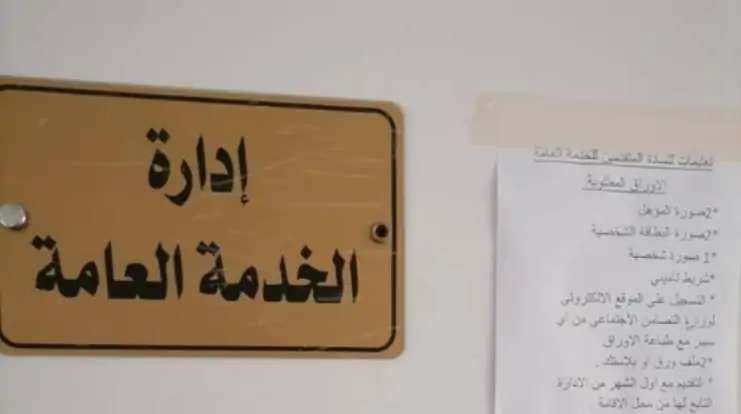 إدارة
الخدمة العامة
تعليمات للسادة المتقدمين للخدمة العامة
الاوراق المطلوبة
*2صورة المؤهل
*2صورة البطاقة الشخصية
*1 صورة شخصية
*شريط تأميني
* التسجيل على الموقع الالكتروني
لوزارة التضامن الأجتماعى من اي
سيبر مع طباعة الاوراق
*2ملف ورق او بلاستك .
* التقديم مع اول الشهر من الادارة
التابع لها من محل الاقامة